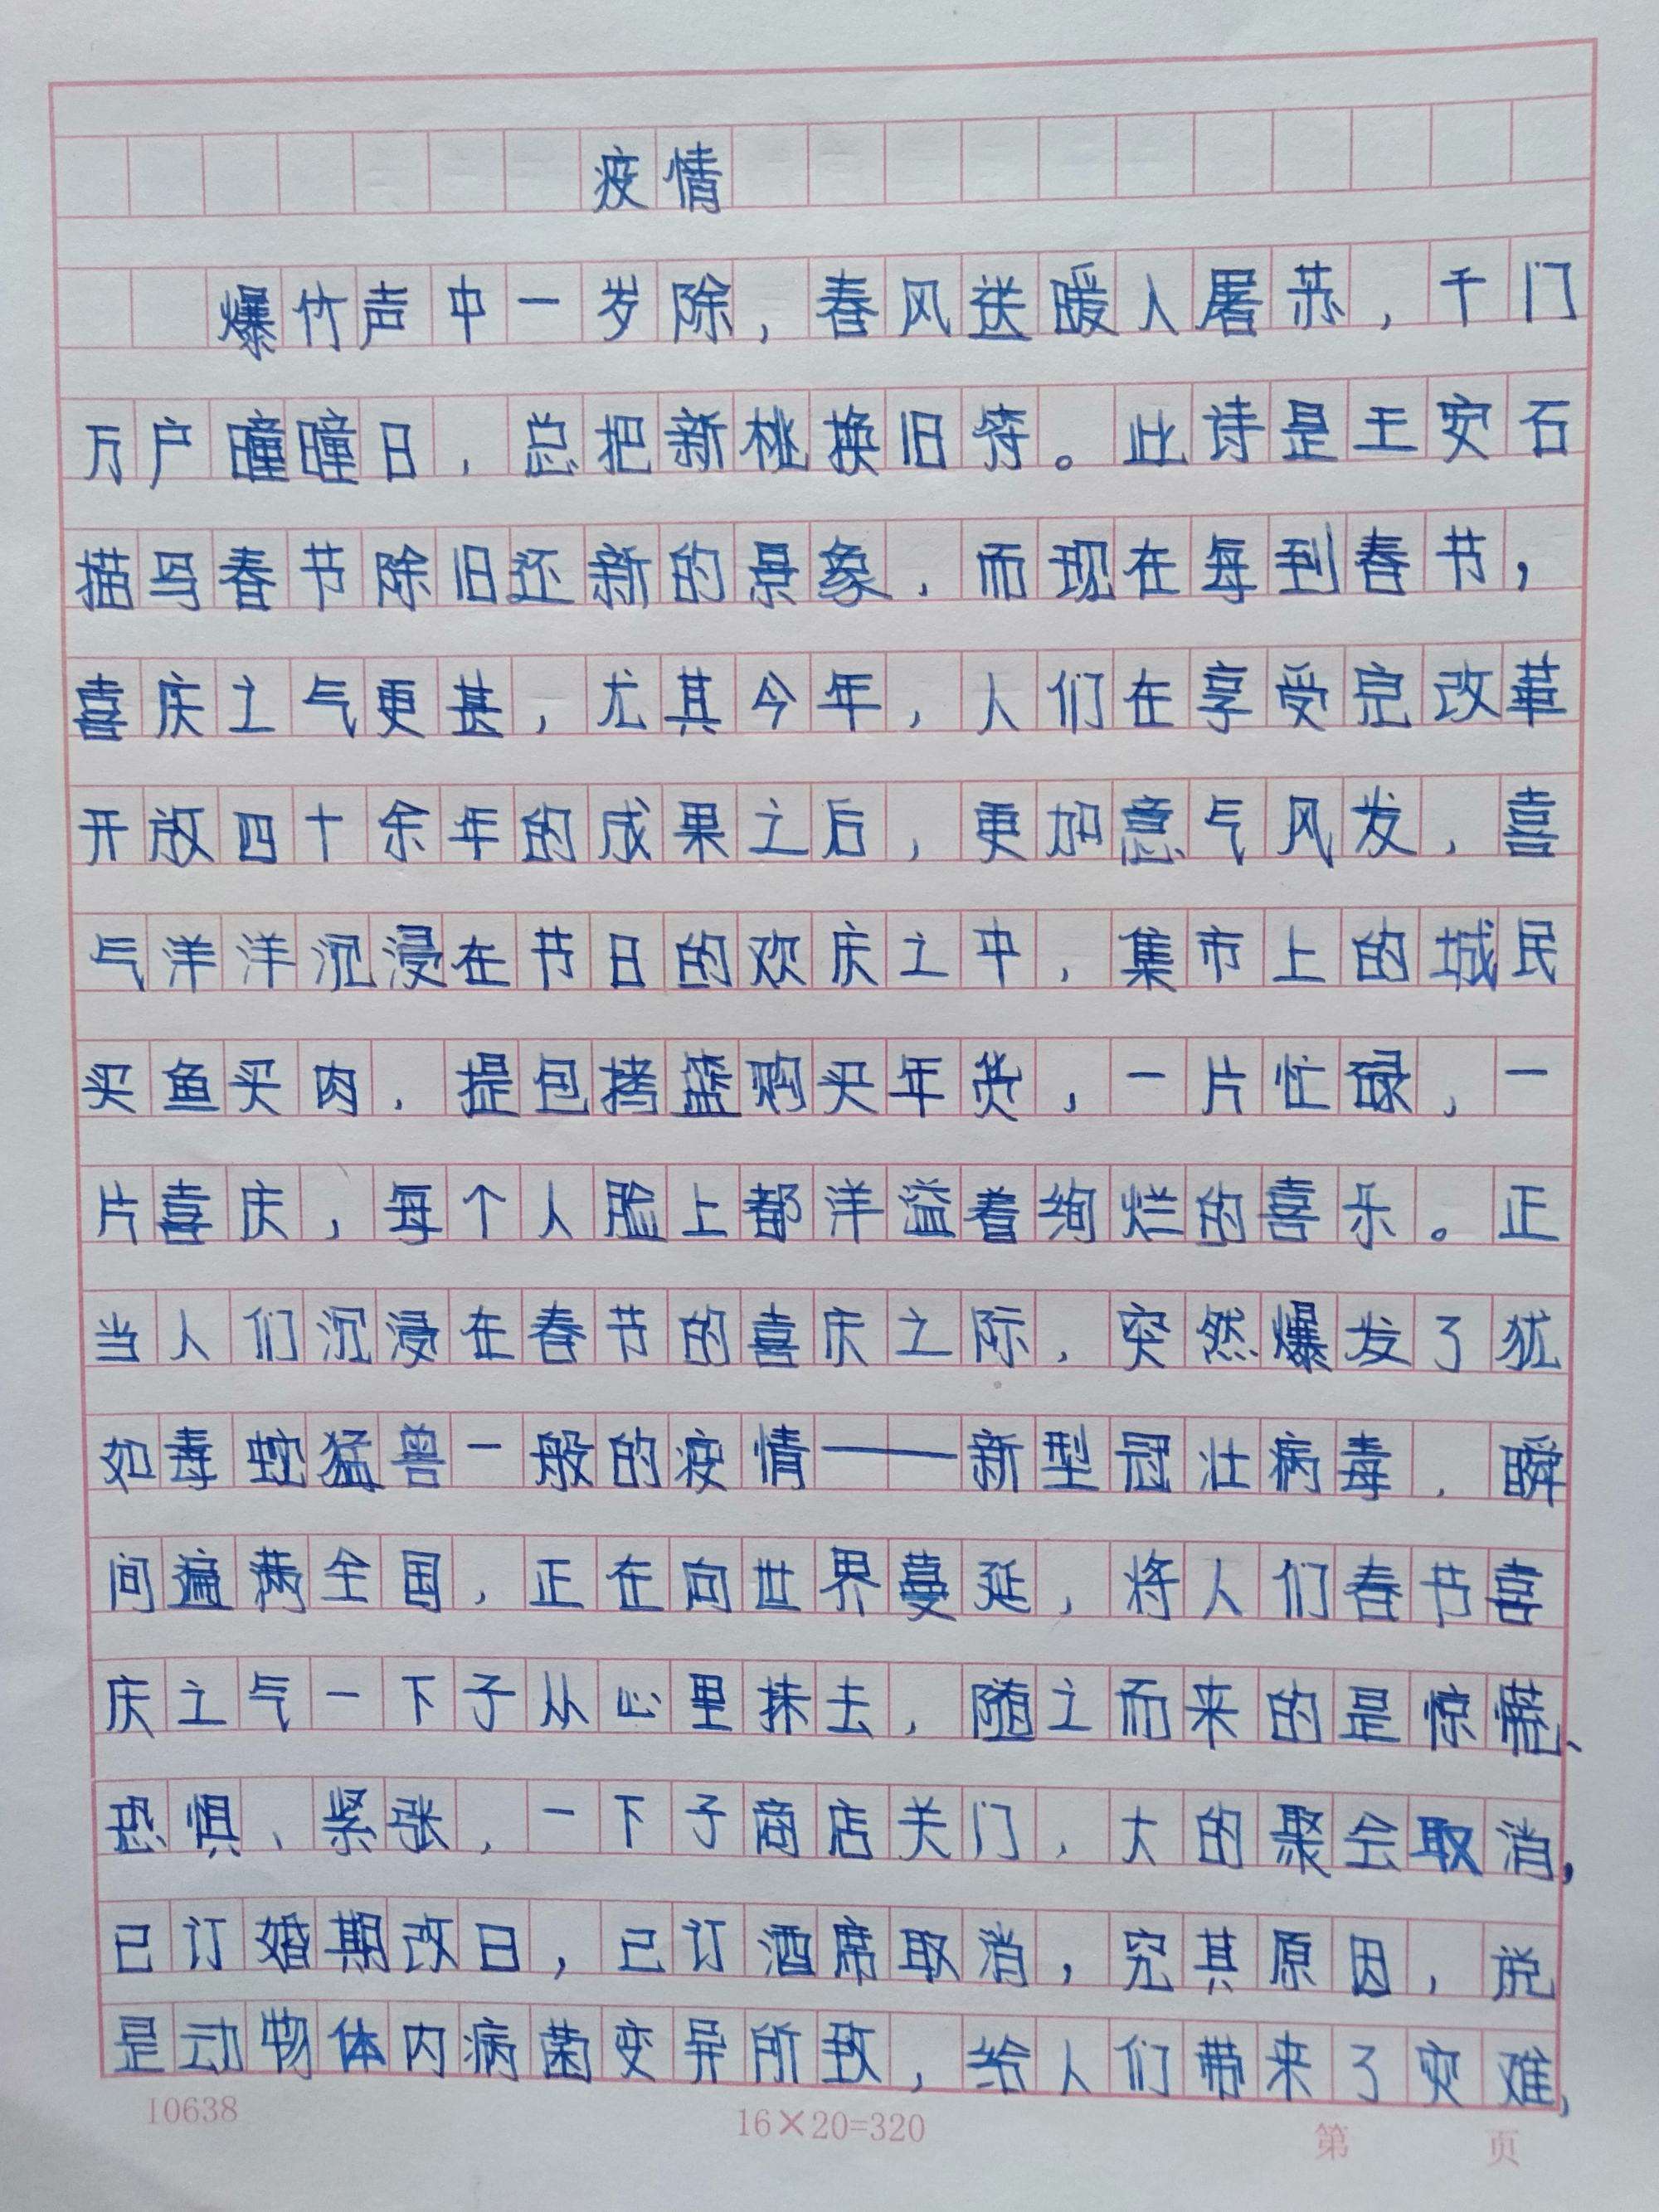 疫情
爆竹声中一岁除，春风送暖人屠苏，千门
万户曈曈日，总把新桃换旧符。此诗是王安石
描写春节除旧还新的景象，而现在每到春节，
喜庆之气更甚，尤其今年，人们在享受完改革
开放四十余年的成果之后，更加意气风发，喜
气洋洋沉浸在节日的欢庆之中，集市上的城民
买鱼买肉，提包拷篮购买年货，一片忙碌，一
片喜庆，每个人脸上都洋溢着绚烂的喜乐。正
当人们沉浸在春节的喜庆之际，突然爆发了犹
如毒蛇猛兽一般的疫情——新型冠壮病毒，瞬
间遍满全国，正在向世界蔓延，将人们春节喜
庆之气一下子从心里抹去，随之而来的是惊慌、
恐惧、紧张，一下子商店关门，大的聚会取消，
已订婚期改日，已订酒席取消，究其原因，说
是动物体内病菌变异所致，给人们带来了灾难，
10638
16×20=320
第 页